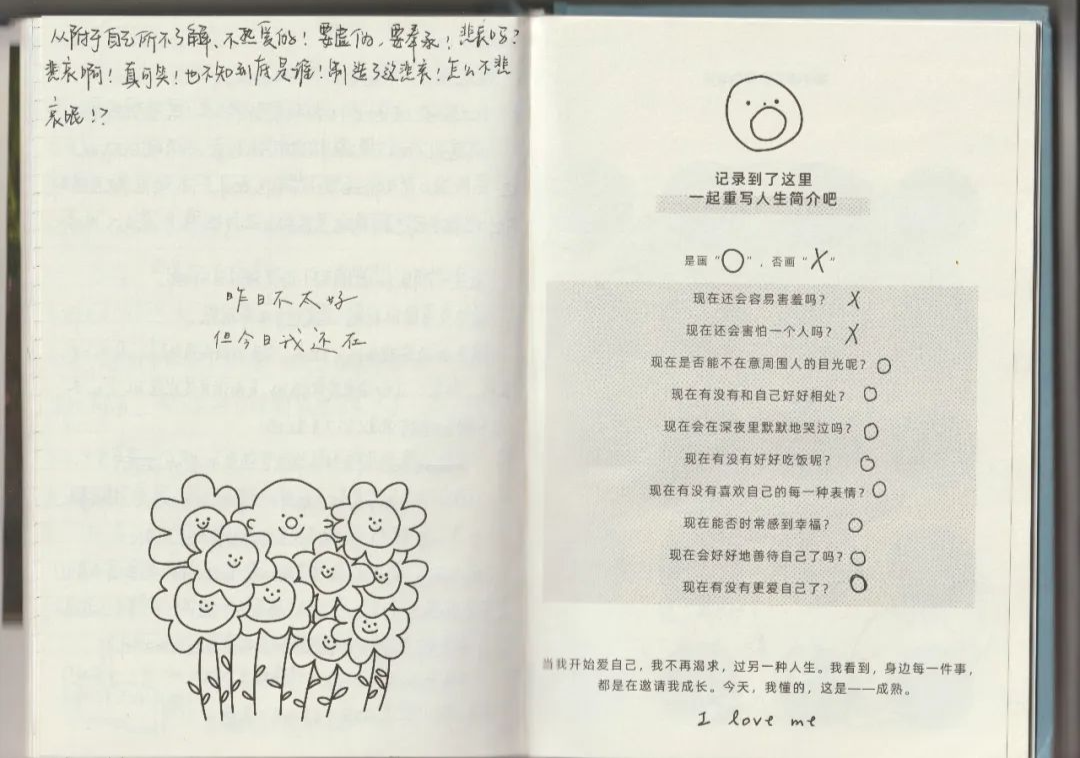 从附于自己所不了解、不热爱的！要虚伪，要奉承！悲哀吗？
悲哀啊！真可笑！也不知到底是谁！制造了这悲哀！怎么不悲
哀呢！？
昨日不太好
但今日我还在
记录到了这里
一起重写人生简介吧
是画“○”，否画“X”
现在还会容易害羞吗？ X
现在还会害怕一个人吗？ X
现在是否能不在意周围人的目光呢？ ○
现在有没有和自己好好相处？ ○
现在会在深夜里默默地哭泣吗？ ○
现在有没有好好吃饭呢？ ○
现在有没有喜欢自己的每一种表情？ ○
现在能否时常感到幸福？ ○
现在会好好地善待自己了吗？ ○
现在有没有更爱自己了？ ○
当我开始爱自己，我不再渴求，过另一种人生。我看到，身边每一件事，
都是在邀请我成长。今天，我懂的，这是——成熟。
I love me